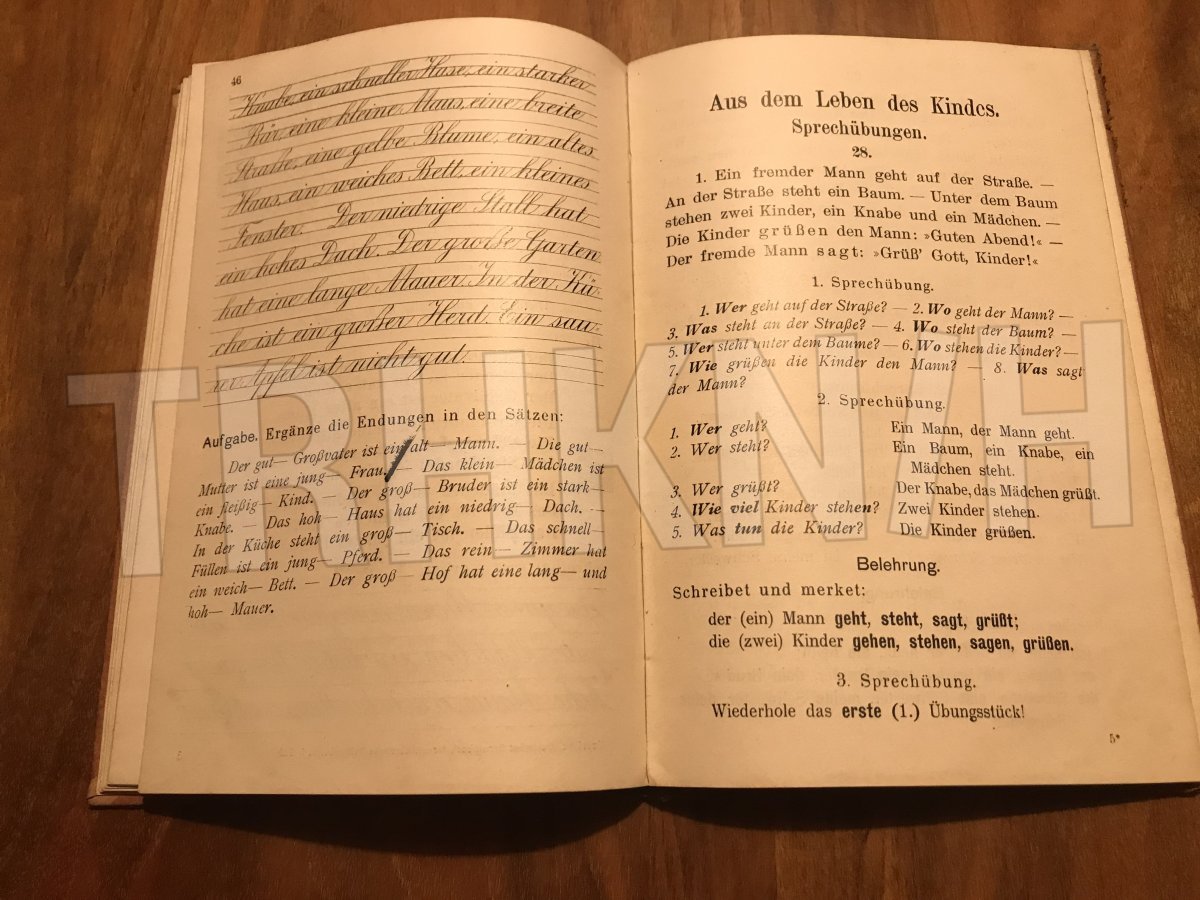 46
Knabe, ein schneller Hase, ein starker
Bär, eine kleine Maus, eine breite
Straße, eine gelbe Blume, ein altes
Haus, ein weiches Bett, ein kleines
Fenster. Der niedrige Stall hat
ein hohes Dach. Der große Garten
hat eine lange Mauer. In der Kü-
che ist ein großer Herd. Ein sau-
rer Apfel ist nicht gut.
Aufgabe. Ergänze die Endungen in den Sätzen:
Der gut— Großvater ist ein alt— Mann. — Die gut—
Mutter ist eine jung— Frau. — Das klein— Mädchen ist
ein fleißig— Kind. — Der groß— Bruder ist ein stark—
Knabe. — Das hoh— Haus hat ein niedrig— Dach. —
In der Küche steht ein groß— Tisch. — Das schnell—
Füllen ist ein jung— Pferd. — Das rein— Zimmer hat
ein weich— Bett. — Der groß— Hof hat eine lang— und
hoh— Mauer.
Aus dem Leben des Kindes.
Sprechübungen.
28.
1. Ein fremder Mann geht auf der Straße. —
An der Straße steht ein Baum. — Unter dem Baum
stehen zwei Kinder, ein Knabe und ein Mädchen. —
Die Kinder grüßen den Mann: »Guten Abend!« —
Der fremde Mann sagt: »Grüß' Gott, Kinder!«
1. Sprechübung.
1. Wer geht auf der Straße? — 2. Wo geht der Mann? —
3. Was steht an der Straße? — 4. Wo steht der Baum? —
5. Wer steht unter dem Baume? — 6. Wo stehen die Kinder? —
7. Wie grüßen die Kinder den Mann? — 8. Was sagt
der Mann?
2. Sprechübung.
1. Wer geht? Ein Mann, der Mann geht.
2. Wer steht? Ein Baum, ein Knabe, ein
Mädchen steht.
3. Wer grüßt? Der Knabe, das Mädchen grüßt.
4. Wie viel Kinder stehen? Zwei Kinder stehen.
5. Was tun die Kinder? Die Kinder grüßen.
Belehrung.
Schreibet und merket:
der (ein) Mann geht, steht, sagt, grüßt;
die (zwei) Kinder gehen, stehen, sagen, grüßen.
3. Sprechübung.
Wiederhole das erste (1.) Übungsstück!
5*